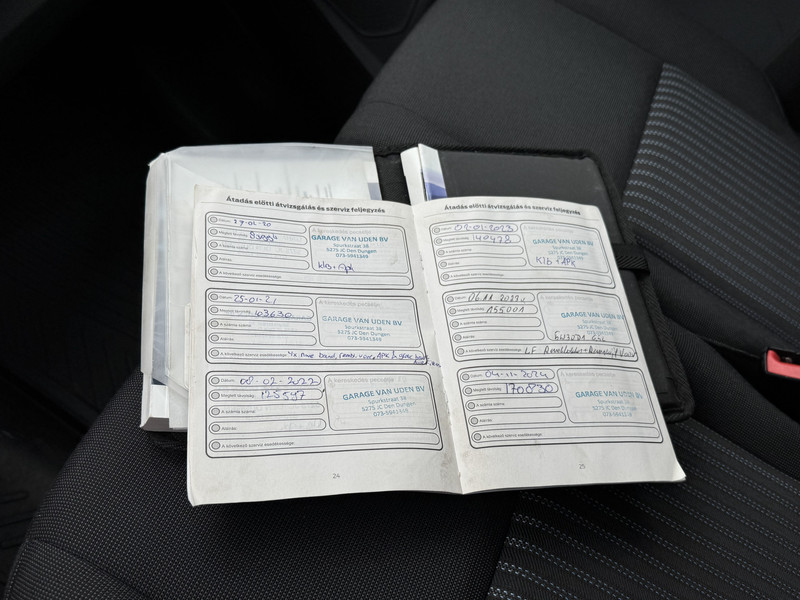 Átadás előtti átvizsgálás és szerviz feljegyzés
Dátum: 27-01-20
Megtett távolság:
A számla száma:
Aláírás:
A következő szerviz esedékessége:
A kereskedés pecsétje:
GARAGE VAN UDEN BV
Spurkstraat 38
5275 JC Den Dungen
073-5941349
klb + apk
Dátum: 25-01-21
Megtett távolság: 103630
A számla száma:
Aláírás:
A következő szerviz esedékessége: 4x nwe band,
A kereskedés pecsétje:
GARAGE VAN UDEN BV
Spurkstraat 38
5275 JC Den Dungen
073-5941349
Dátum: 08-02-2022
Megtett távolság: 125597
A számla száma:
Aláírás:
A következő szerviz esedékessége:
A kereskedés pecsétje:
GARAGE VAN UDEN BV
Spurkstraat 38
5275 JC Den Dungen
073-5941349
24
Átadás előtti átvizsgálás és szerviz feljegyzés
Dátum: 02-01-2023
Megtett távolság: 140478
A számla száma:
Aláírás:
A következő szerviz esedékessége:
A kereskedés pecsétje:
GARAGE VAN UDEN BV
Spurkstraat 38
5275 JC Den Dungen
073-5941349
Klb + APK
Dátum: 06.11.2023
Megtett távolság: 155001
A számla száma:
Aláírás:
A következő szerviz esedékessége: LF
A kereskedés pecsétje:
GARAGE VAN UDEN BV
Spurkstraat 38
5275 JC Den Dungen
Dátum: 04-11-2024
Megtett távolság: 170830
A számla száma:
Aláírás:
A következő szerviz esedékessége:
A kereskedés pecsétje:
GARAGE VAN UDEN BV
Spurkstraat 38
5275 JC Den Dungen
25